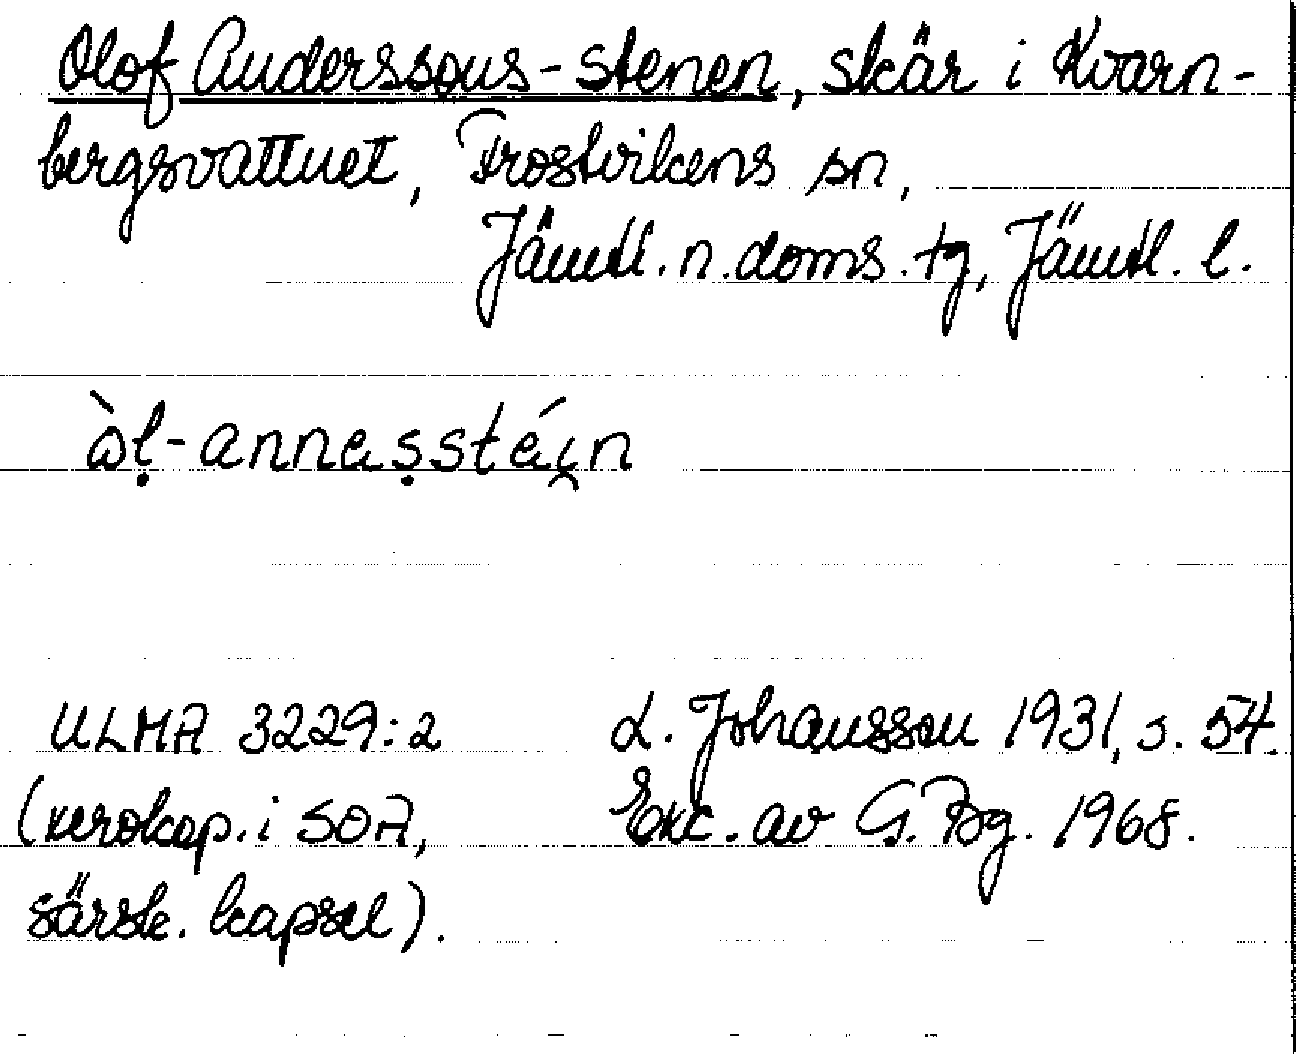 Olof Anderssons-stenen, skär i Kvarn-
bergsvattnet, Frostvikens sn,
Jämtl. n. doms. tg, Jämtl. l.
ὼḷ-annaṣstéi̯n
ULMA 3229:2 L. Johansson 1931, s. 54.
(xerokop. i SOA, Exc. av G. Bg. 1968.
särsk. kapsel).